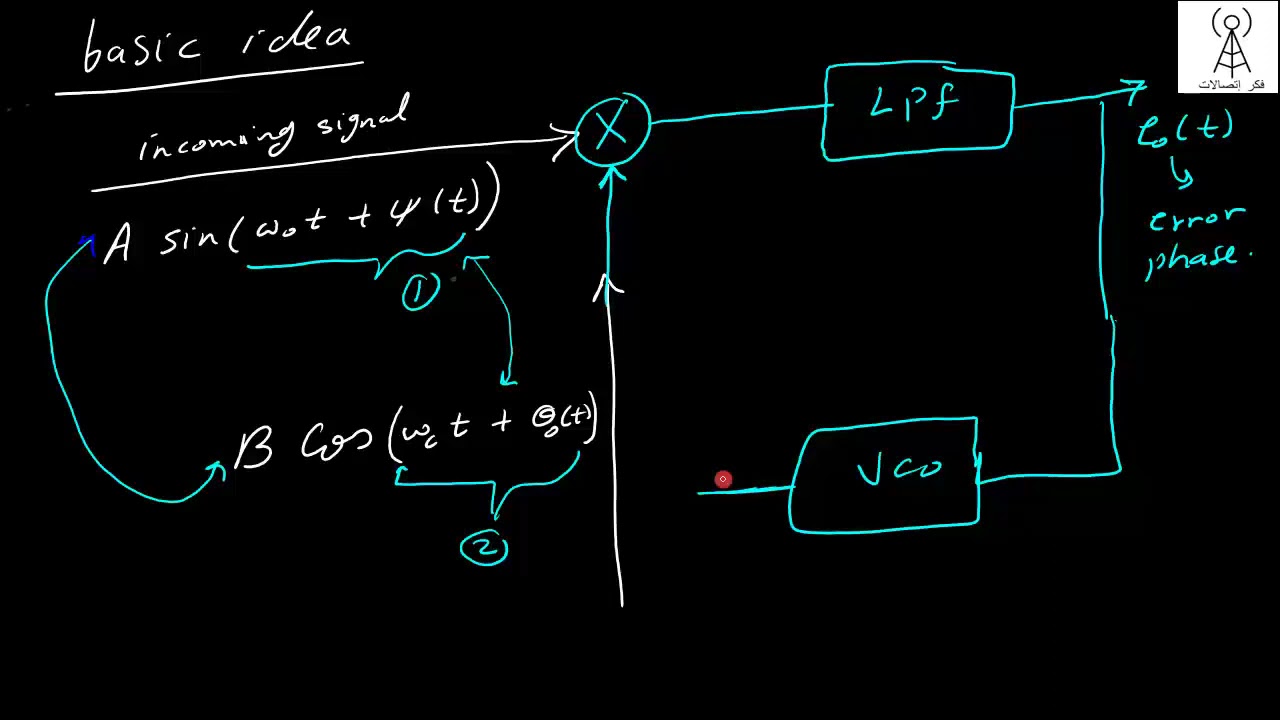 basic idea
incoming signal
A sin(ω₀t + ψ(t))
①
B Cos(ω꜀t + θ₀(t))
②
X
LPf
e₀(t)
error
phase.
VCO
فكر إتصالات